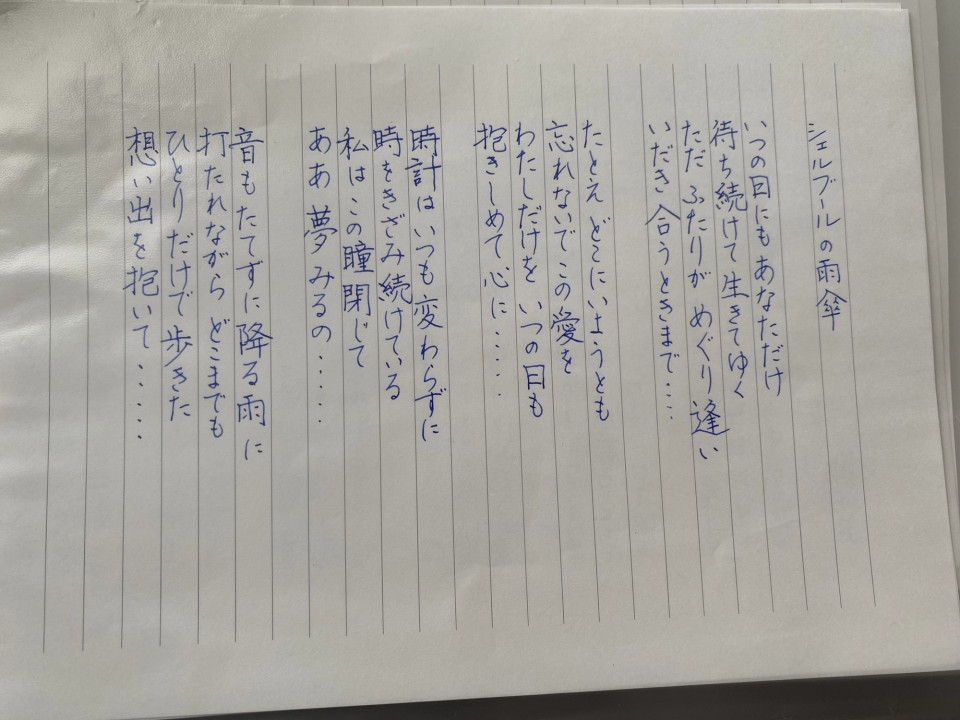 シェルブールの雨傘
いつの日にもあなただけ
待ち続けて生きてゆく
ただ ふたりが めぐり逢い
いだき合うときまで‥‥
たとえ どこにいようとも
忘れないでこの愛を
わたしだけを いつの日も
抱きしめて心に‥‥‥
時計はいつも変わらずに
時をきざみ続けている
私はこの瞳閉じて
ああ 夢みるの‥‥‥
音もたてずに降る雨に
打たれながら どこまでも
ひとりだけで歩きた
想い出を抱いて‥‥‥